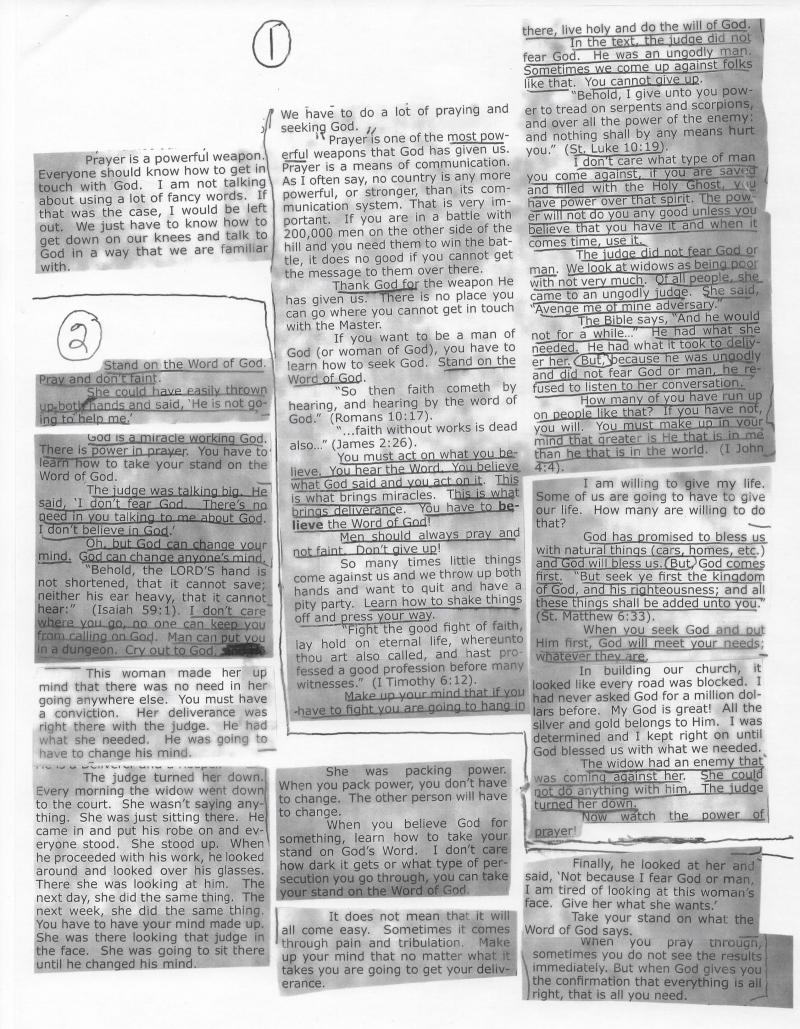 1
Prayer is a powerful weapon.
Everyone should know how to get in
touch with God. I am not talking
about using a lot of fancy words. If
that was the case, I would be left
out. We just have to know how to
get down on our knees and talk to
God in a way that we are familiar
with.
We have to do a lot of praying and
seeking God.
"Prayer is one of the most pow-
erful weapons that God has given us.
Prayer is a means of communication.
As I often say, no country is any more
powerful, or stronger, than its com-
munication system. That is very im-
portant. If you are in a battle with
200,000 men on the other side of the
hill and you need them to win the bat-
tle, it does no good if you cannot get
the message to them over there.
Thank God for the weapon He
has given us. There is no place you
can go where you cannot get in touch
with the Master.
If you want to be a man of
God (or woman of God), you have to
learn how to seek God. Stand on the
Word of God.
"So then faith cometh by
hearing, and hearing by the word of
God." (Romans 10:17).
"...faith without works is dead
also..." (James 2:26).
You must act on what you be-
lieve. You hear the Word. You believe
what God said and you act on it. This
is what brings miracles. This is what
brings deliverance. You have to be-
lieve the Word of God!
Men should always pray and
not faint. Don't give up!
So many times little things
come against us and we throw up both
hands and want to quit and have a
pity party. Learn how to shake things
off and press your way.
"Fight the good fight of faith,
lay hold on eternal life, whereunto
thou art also called, and hast pro-
fessed a good profession before many
witnesses." (I Timothy 6:12).
Make up your mind that if you
have to fight you are going to hang in
there, live holy and do the will of God.
In the text, the judge did not
fear God. He was an ungodly man.
Sometimes we come up against folks
like that. You cannot give up.
"Behold, I give unto you pow-
er to tread on serpents and scorpions,
and over all the power of the enemy:
and nothing shall by any means hurt
you." (St. Luke 10:19).
I don't care what type of man
you come against, if you are saved
and filled with the Holy Ghost, you
have power over that spirit. The pow-
er will not do you any good unless you
believe that you have it and when it
comes time, use it.
The judge did not fear God or
man. We look at widows as being poor
with not very much. Of all people, she
came to an ungodly judge. She said,
"Avenge me of mine adversary."
The Bible says, "And he would
not for a while..." He had what she
needed. He had what it took to deliv-
er her. But, because he was ungodly
and did not fear God or man, he re-
fused to listen to her conversation.
How many of you have run up
on people like that? If you have not,
you will. You must make up in your
mind that greater is He that is in me
than he that is in the world. (I John
4:4).
I am willing to give my life.
Some of us are going to have to give
our life. How many are willing to do
that?
God has promised to bless us
with natural things (cars, homes, etc.)
and God will bless us. But, God comes
first. "But seek ye first the kingdom
of God, and his righteousness; and all
these things shall be added unto you."
(St. Matthew 6:33).
When you seek God and put
Him first, God will meet your needs;
whatever they are.
In building our church, it
looked like every road was blocked. I
had never asked God for a million dol-
lars before. My God is great! All the
silver and gold belongs to Him. I was
determined and I kept right on until
God blessed us with what we needed.
The widow had an enemy that
was coming against her. She could
not do anything with him. The judge
turned her down.
Now watch the power of
prayer!
2
Stand on the Word of God.
Pray and don't faint.
She could have easily thrown
up both hands and said, 'He is not go-
ing to help me.'
God is a miracle working God.
There is power in prayer. You have to
learn how to take your stand on the
Word of God.
The judge was talking big. He
said, 'I don't fear God. There's no
need in you talking to me about God.
I don't believe in God.'
Oh, but God can change your
mind. God can change anyone's mind.
"Behold, the LORD'S hand is
not shortened, that it cannot save;
neither his ear heavy, that it cannot
hear:" (Isaiah 59:1). I don't care
where you go, no one can keep you
from calling on God. Man can put you
in a dungeon. Cry out to God.
This woman made her up
mind that there was no need in her
going anywhere else. You must have
a conviction. Her deliverance was
right there with the judge. He had
what she needed. He was going to
have to change his mind.
The judge turned her down.
Every morning the widow went down
to the court. She wasn't saying any-
thing. She was just sitting there. He
came in and put his robe on and ev-
eryone stood. She stood up. When
he proceeded with his work, he looked
around and looked over his glasses.
There she was looking at him. The
next day, she did the same thing. The
next week, she did the same thing.
You have to have your mind made up.
She was there looking that judge in
the face. She was going to sit there
until he changed his mind.
She was packing power.
When you pack power, you don't have
to change. The other person will have
to change.
When you believe God for
something, learn how to take your
stand on God's Word. I don't care
how dark it gets or what type of per-
secution you go through, you can take
your stand on the Word of God.
It does not mean that it will
all come easy. Sometimes it comes
through pain and tribulation. Make
up your mind that no matter what it
takes you are going to get your deliv-
erance.
Finally, he looked at her and
said, 'Not because I fear God or man,
I am tired of looking at this woman's
face. Give her what she wants.'
Take your stand on what the
Word of God says.
When you pray through,
sometimes you do not see the results
immediately. But when God gives you
the confirmation that everything is all
right, that is all you need.